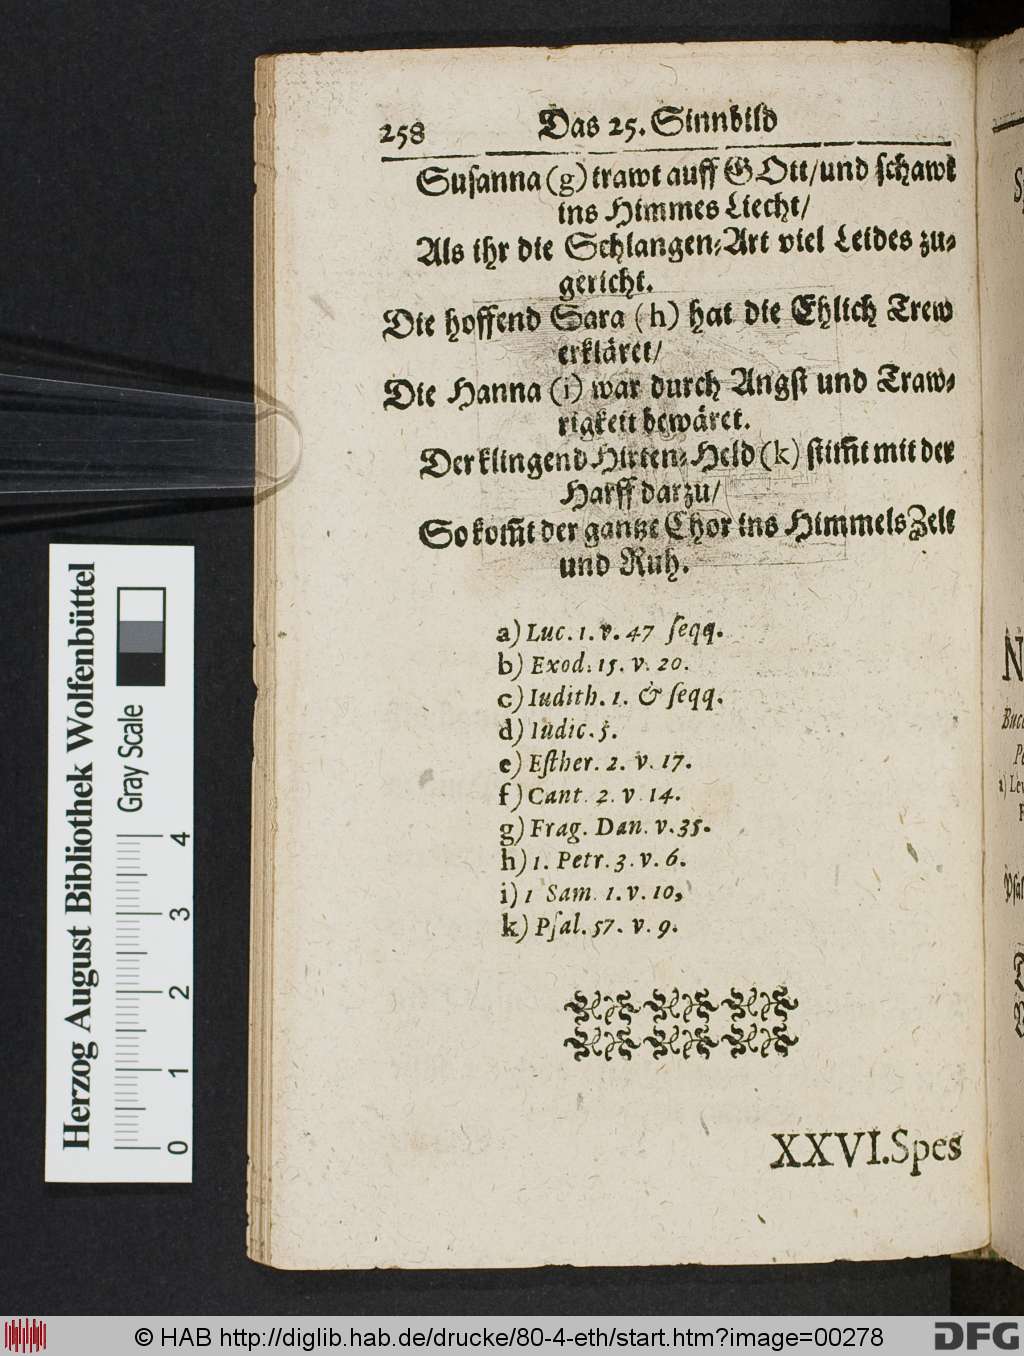 258 Das 25. Sinnbild
Suſanna (g) trawt auff GOtt/und ſchawt
ins Himmes Liecht/
Als ihr die Schlangen⸗Art viel Leides zu⸗
gericht.
Die hoffend Sara (h) hat die Ehlich Trew
erkläret/
Die Hanna (i) war durch Angſt und Traw⸗
rigkeit bewäret.
Der klingend Hirten⸗Held (k) ſtim̃t mit der
Harff darzu/
So kom̃t der gantze Chor ins Himmels Zelt
und Ruh.
a) Luc. 1. v. 47 ſeqq.
b) Exod. 15. v. 20.
c) Iudith. 1. & ſeqq.
d) Iudic. 5.
e) Eſther. 2. v. 17.
f) Cant. 2. v 14.
g) Frag. Dan. v. 35.
h) 1. Petr. 3. v. 6.
i) 1 Sam. 1. v. 10,
k) Pſal. 57. v. 9.
XXVI. Spes
Herzog August Bibliothek Wolfenbüttel
Gray Scale
0 1 2 3 4
© HAB http://diglib.hab.de/drucke/80-4-eth/start.htm?image=00278
DFG